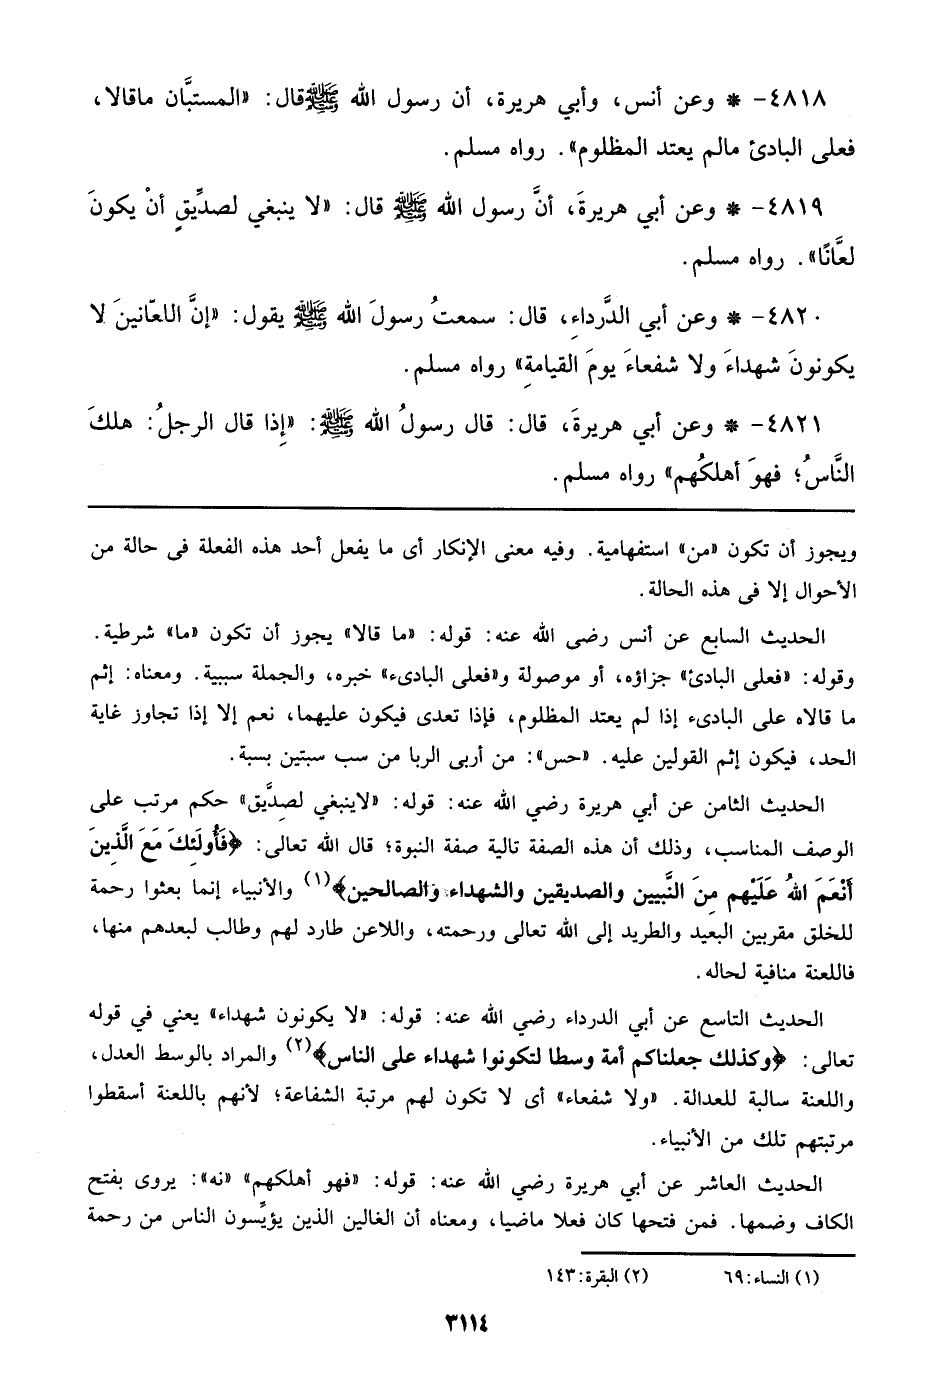 ٤٨١٨- * وعن أنس، وأبي هريرة، أن رسول الله ﷺ قال: «المستبَّان ماقالا،
فعلى البادئ مالم يعتد المظلوم». رواه مسلم.
٤٨١٩- * وعن أبي هريرةَ، أنَّ رسول الله ﷺ قال: «لا ينبغي لصدِّيقٍ أنْ يكونَ
لعَّانًا». رواه مسلم.
٤٨٢٠- * وعن أبي الدَّرداءِ، قال: سمعتُ رسولَ الله ﷺ يقول: «إنَّ اللعّانينَ لا
يكونونَ شهداءَ ولا شفعاءَ يومَ القيامةِ» رواه مسلم.
٤٨٢١- * وعن أبي هريرةَ، قال: قال رسولُ الله ﷺ: «إذا قال الرجلُ: هلكَ
النَّاسُ؛ فهوَ أهلكُهم» رواه مسلم.
ويجوز أن تكون «من» استفهامية. وفيه معنى الإنكار أى ما يفعل أحد هذه الفعلة فى حالة من
الأحوال إلا فى هذه الحالة.
الحديث السابع عن أنس رضى الله عنه: قوله: «ما قالا» يجوز أن تكون «ما» شرطية.
وقوله: «فعلى البادئ» جزاؤه، أو موصولة و«فعلى البادىء» خبره، والجملة سببية. ومعناه: إثم
ما قالاه على البادىء إذا لم يعتد المظلوم، فإذا تعدى فيكون عليهما، نعم إلا إذا تجاوز غاية
الحد، فيكون إثم القولين عليه. «حس»: من أربى الربا من سب سبتين بسبة.
الحديث الثامن عن أبي هريرة رضي الله عنه: قوله: «لاينبغي لصدِّيق» حكم مرتب على
الوصف المناسب، وذلك أن هذه الصفة تالية صفة النبوة؛ قال الله تعالى: ﴿فَأُولَئِكَ مَعَ الَّذِينَ
أَنْعَمَ اللهُ عَلَيْهم مِنَ النَّبيين والصديقين والشهداء والصالحين﴾(١) والأنبياء إنما بعثوا رحمة
للخلق مقربين البعيد والطريد إلى الله تعالى ورحمته، واللاعن طارد لهم وطالب لبعدهم منها،
فاللعنة منافية لحاله.
الحديث التاسع عن أبي الدرداء رضي الله عنه: قوله: «لا يكونون شهداء» يعني في قوله
تعالى: ﴿وكذلك جعلناكم أمة وسطا لتكونوا شهداء على الناس﴾(٢) والمراد بالوسط العدل،
واللعنة سالبة للعدالة. «ولا شفعاء» أى لا تكون لهم مرتبة الشفاعة؛ لأنهم باللعنة أسقطوا
مرتبتهم تلك من الأنبياء.
الحديث العاشر عن أبي هريرة رضي الله عنه: قوله: «فهو أهلكهم» «نه»: يروى بفتح
الكاف وضمها. فمن فتحها كان فعلا ماضيا، ومعناه أن الغالين الذين يؤيِّسون الناس من رحمة
(١) النساء:٦٩ (٢) البقرة:١٤٣
٣١١٤